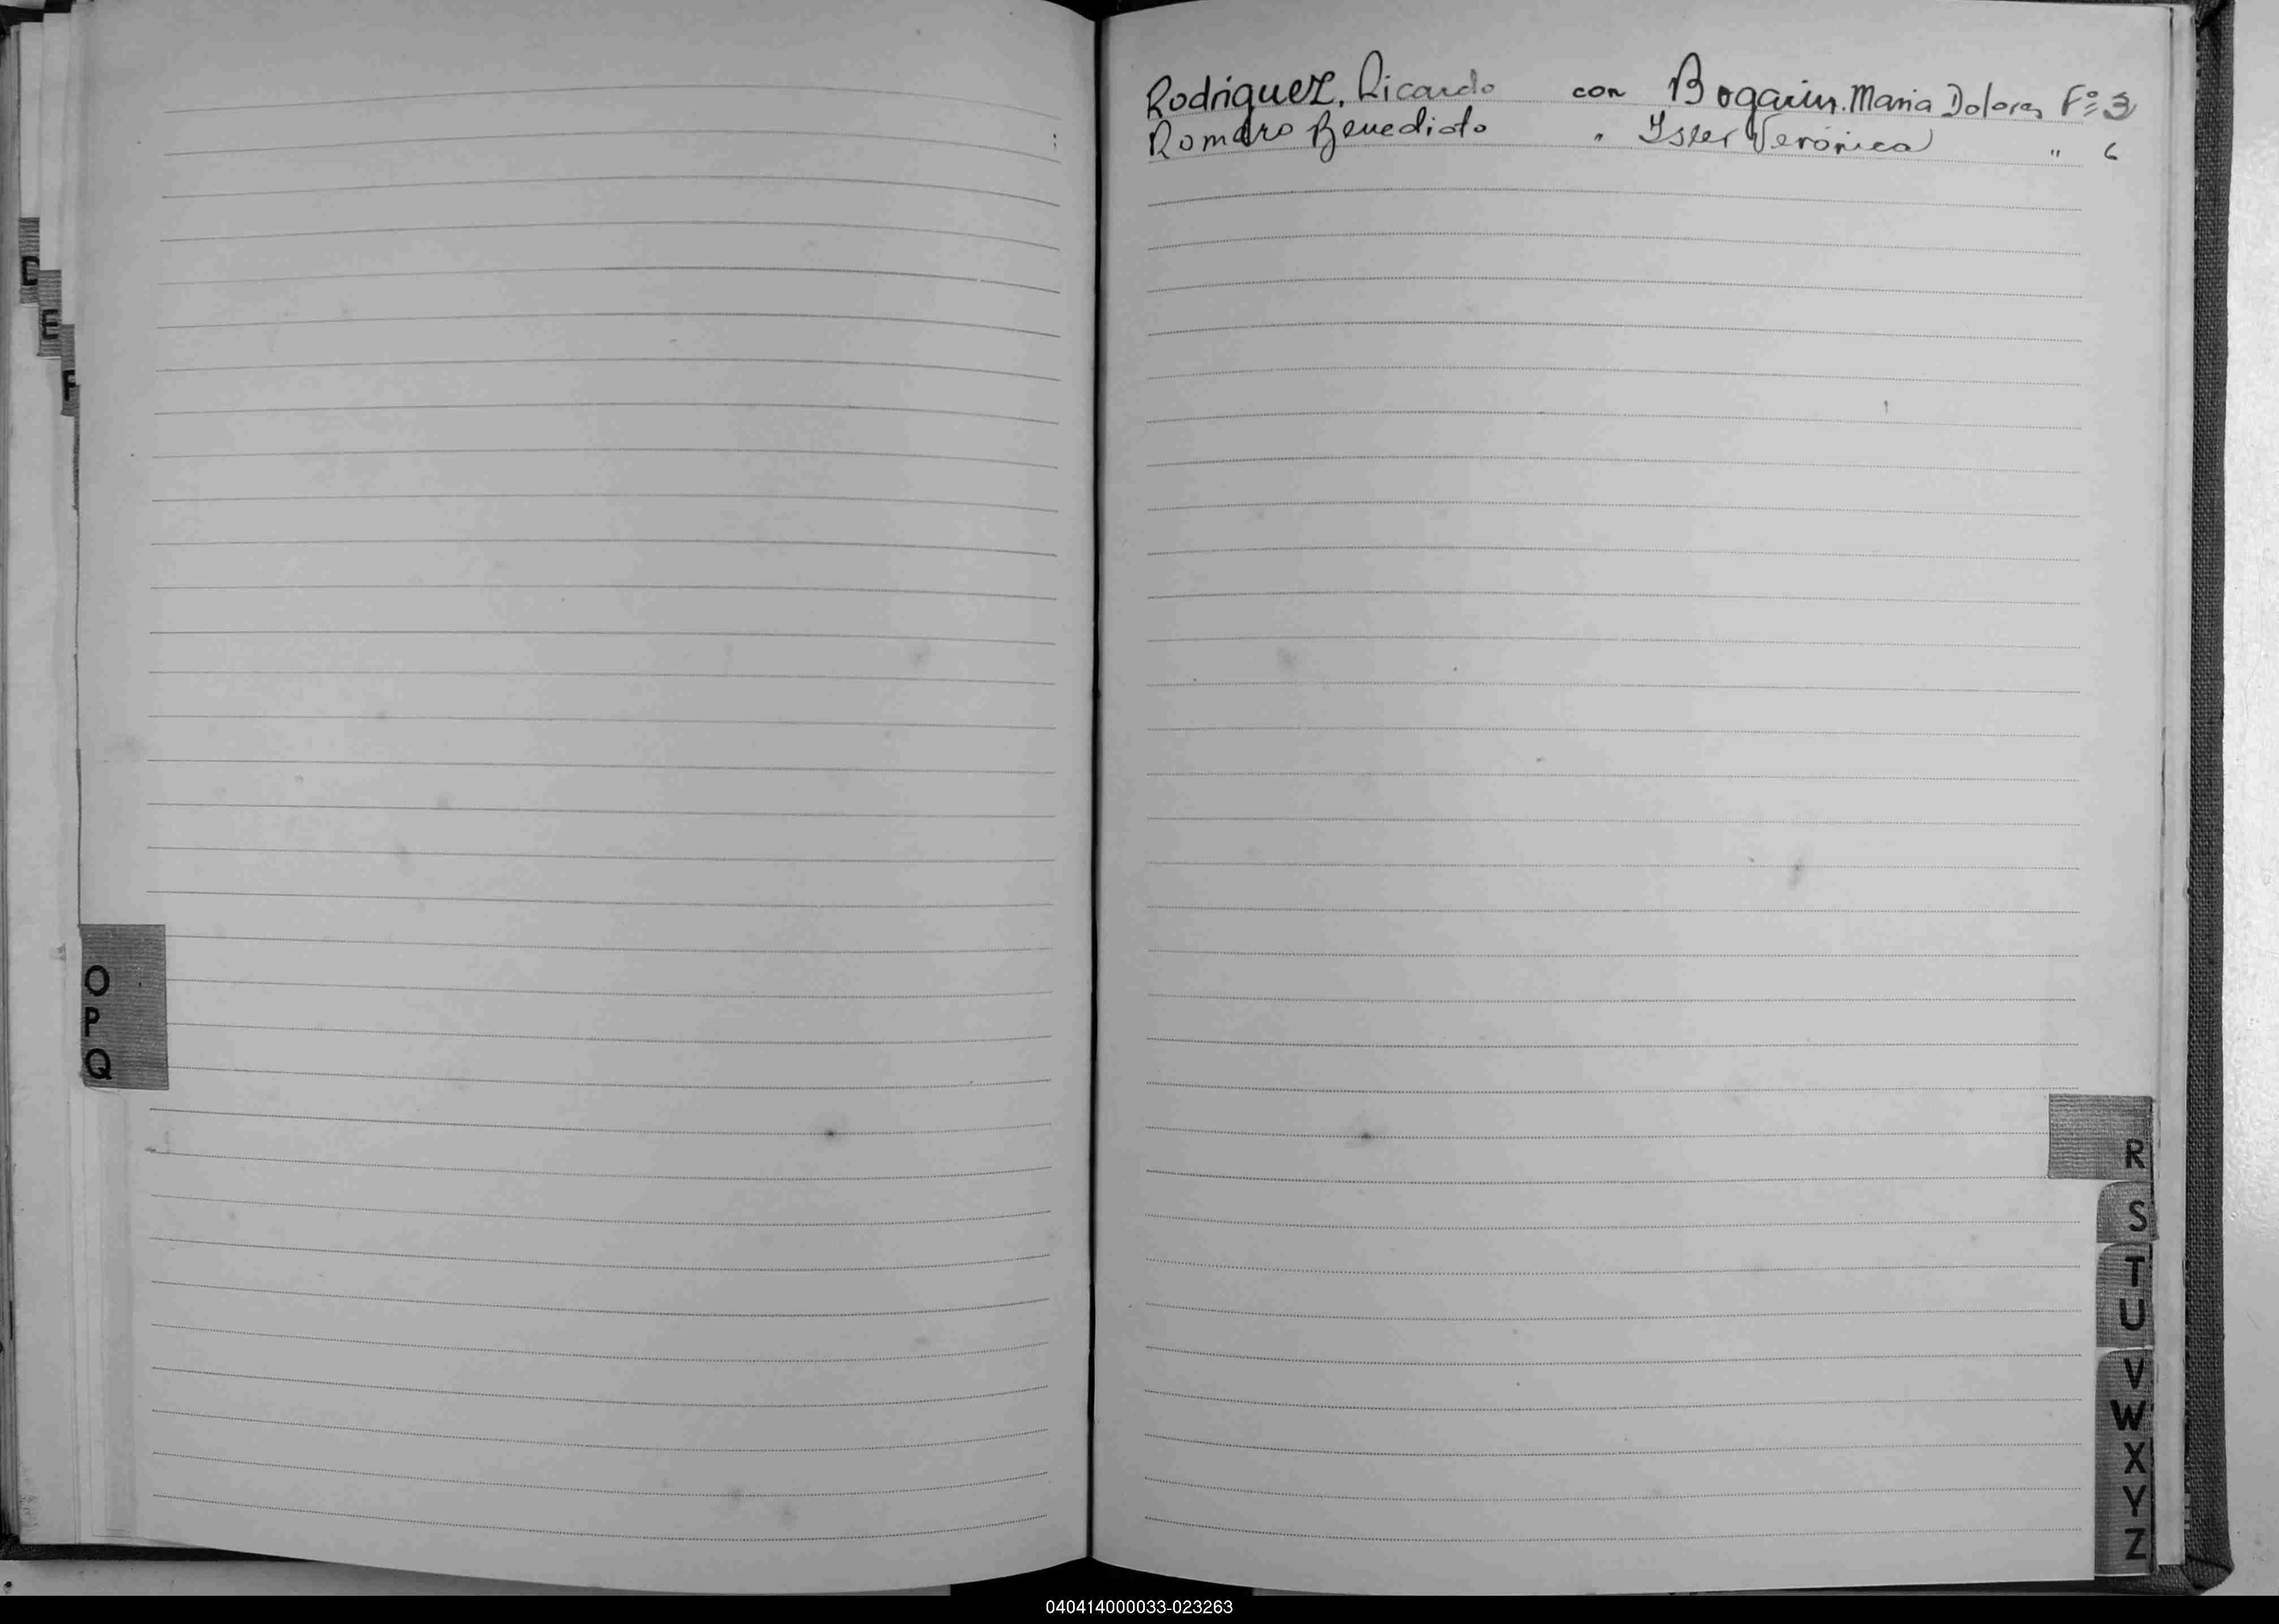 D
E
F
O
P
Q
Rodriguez, Ricardo con Bogarin. Maria Dolores Fº 3
Romero Benedicto " Isler Verónica " 6
R
S
T
U
V
W
X
Y
Z
040414000033-023263